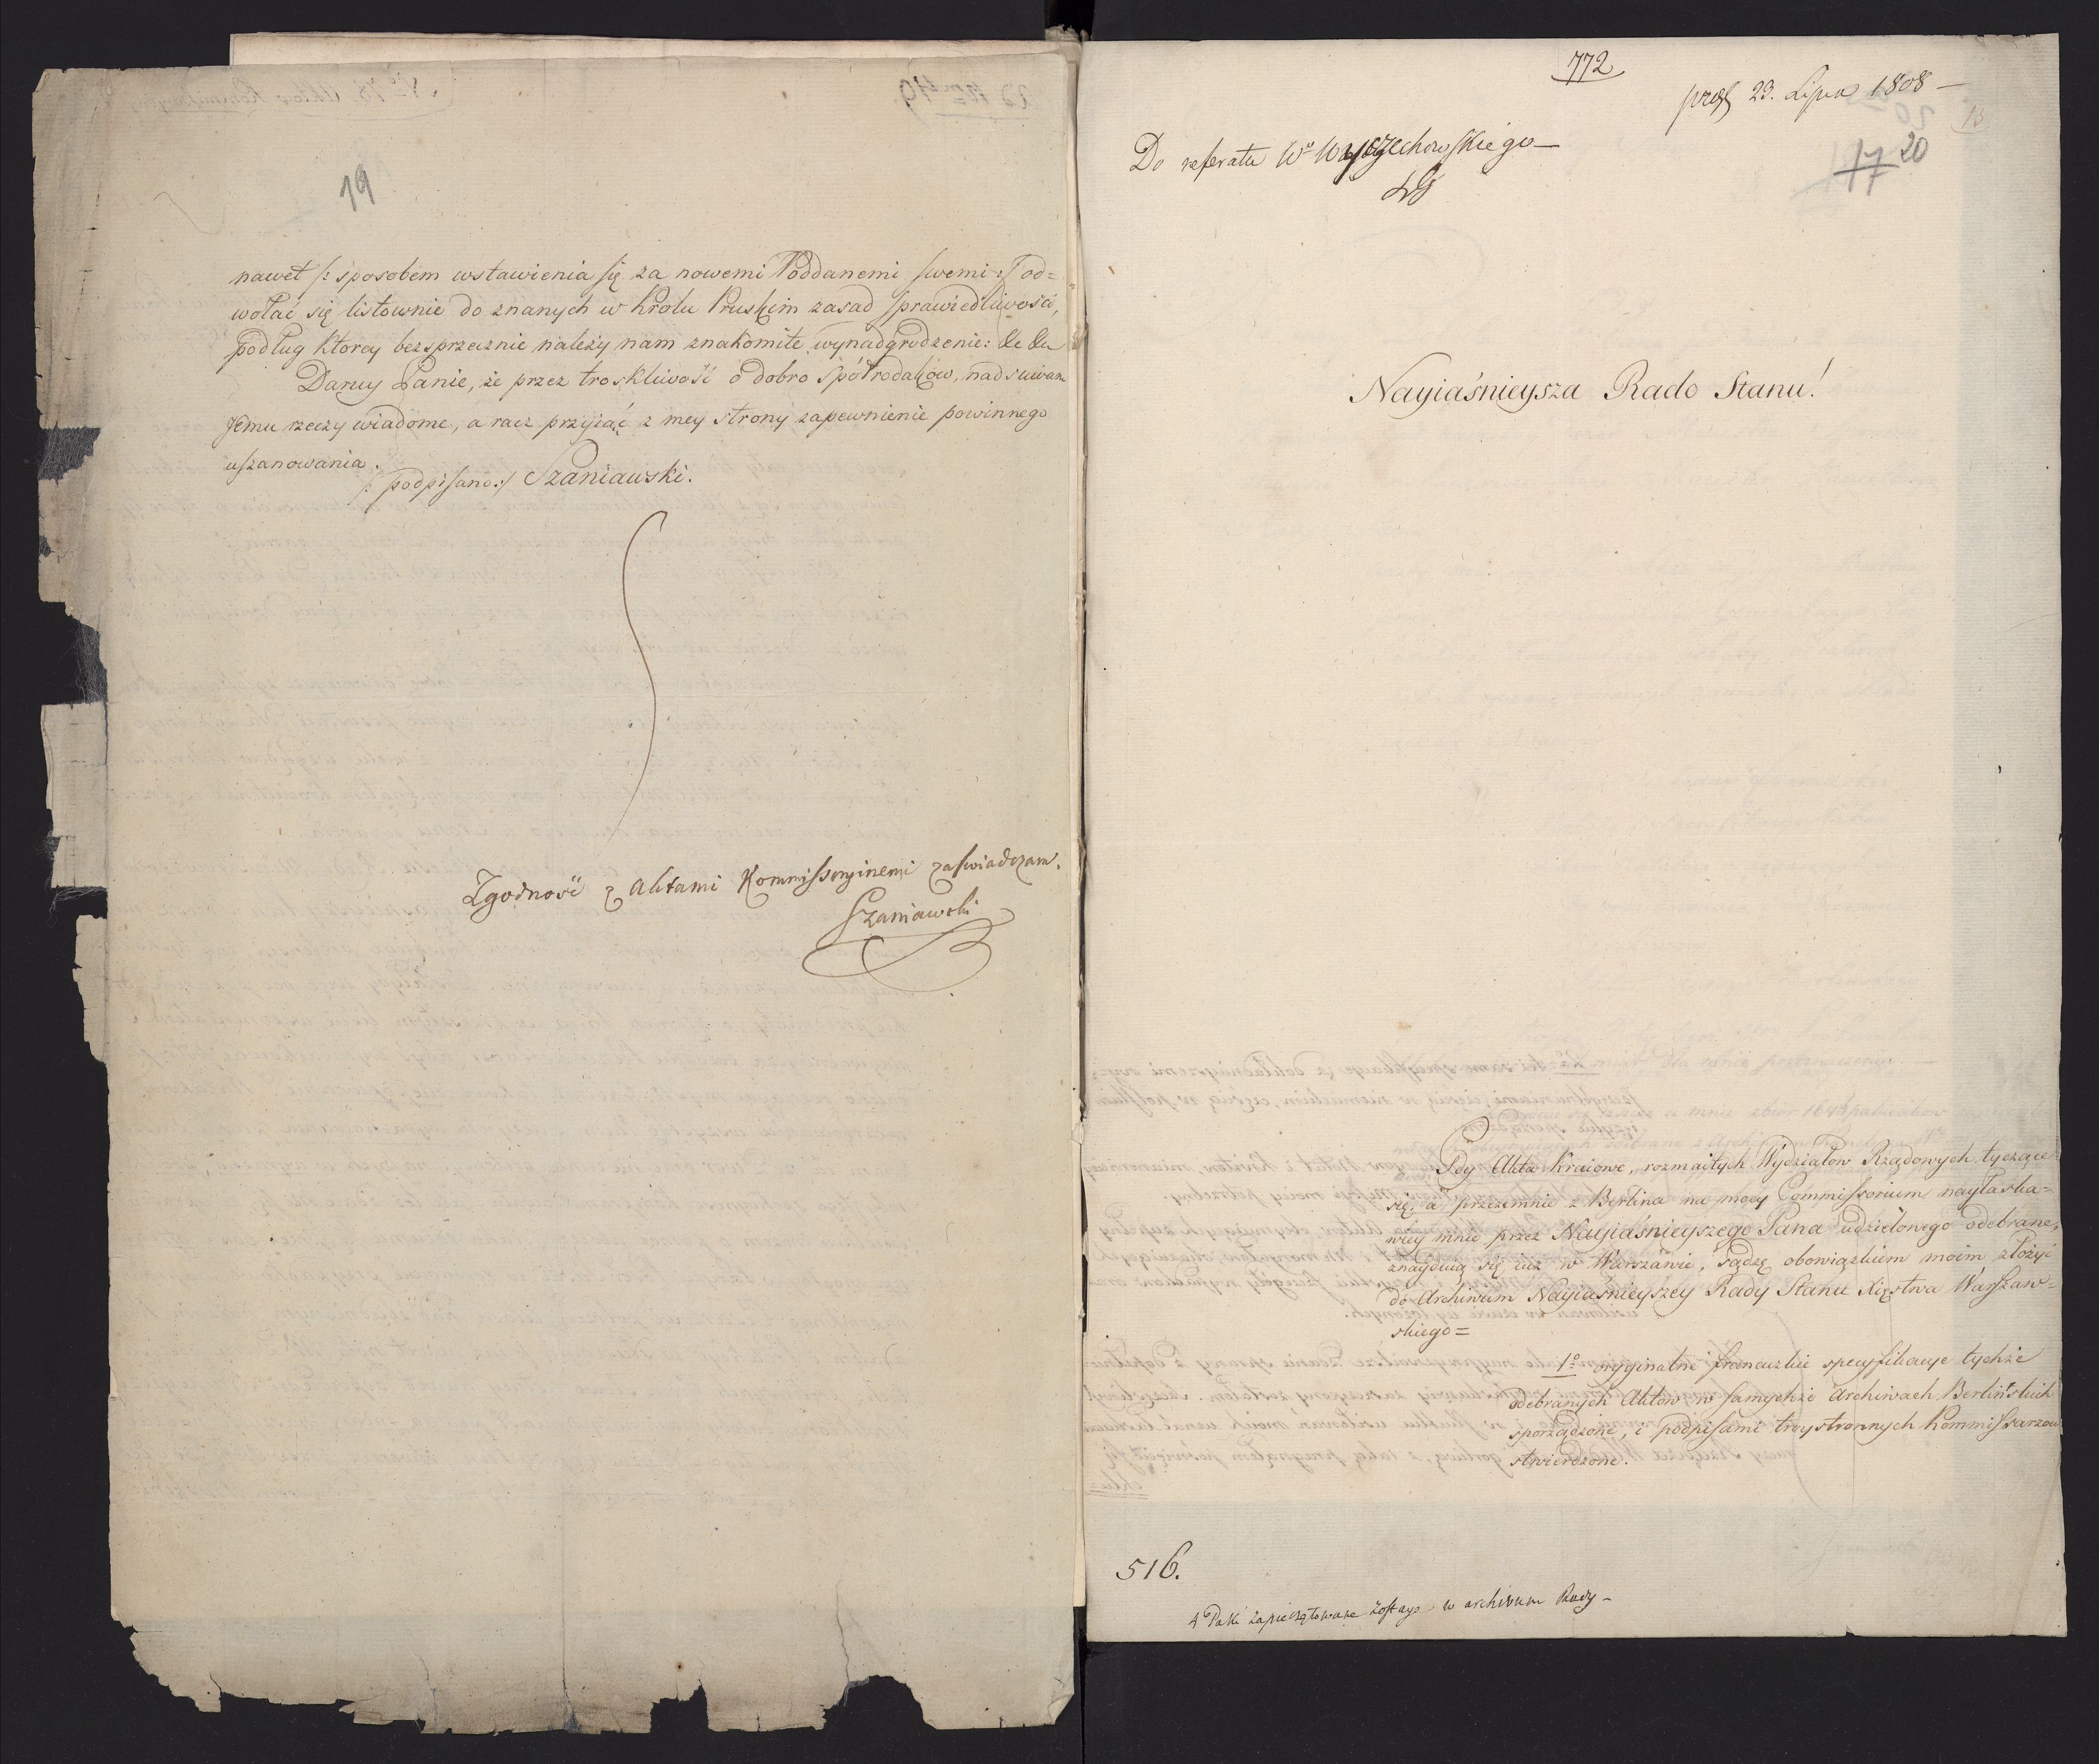 19
nawet /: sposobem wstawienia się za nowemi Poddanemi swemi :/ od=
wołać się listownie do znanych w Krolu Pruskim zasad sprawiedliwości,
podług ktorey bezsprzecznie należy nam znakomite wynadgrodzenie: &c &c
Daruy Panie, że przez troskliwość o dobro Spółrodaków, nadsuwam
Jemu rzeczy wiadome, a racz przyiąć z mey strony zapewnienie powinnego
uszanowania.
/: podpisano :/ Szaniawski.
Zgodność z Aktami Kommissoryinemi zaświadczam.
Szaniawski
772
prez 23. Lipca 1808 —
13
17 20
Do referatu Wo
Nayiaśnieysza Rado Stanu!
Gdy Akta Kraiowe, rozmaitych Wydziałow Rządowych tyczące
się, a przezemnie z Berlina na mocy Commissorium nayłaska=
wiey mnie przez Nayiaśnieyszego Pana udzielonego odebrane,
znayduią się iuż w Warszawie, sądzę obowiązkiem moim złożyć
do Archiwum Nayiaśnieyszey Rady Stanu Xięstwa Warszaw=
skiego =
1o oryginalne francuzkie specyfikacye tychże
odebranych Aktow w samychże Archiwach Berlińskich
sporządzone, i podpisami troystronnych Kommissarzow
stwierdzone.
516.
4 Paki zapieczętowane zostaią w archiwum Rady —